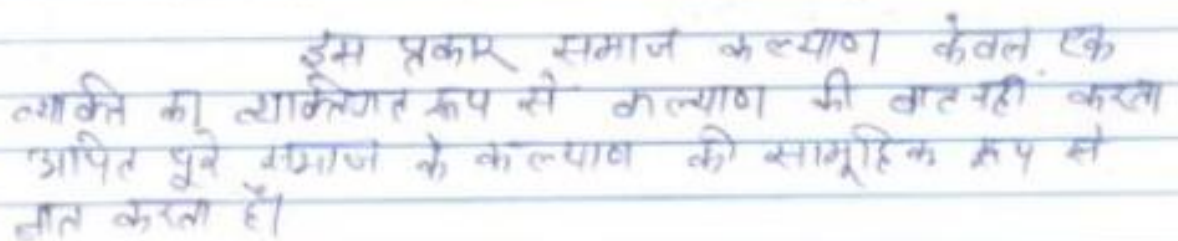 इस प्रकार समाज कल्याण केवल एक
व्यक्ति का व्यक्तिगत रूप से कल्याण की बात नहीं करता
अपित पूरे समाज के कल्याण की सामूहिक रूप से
बात करता है।